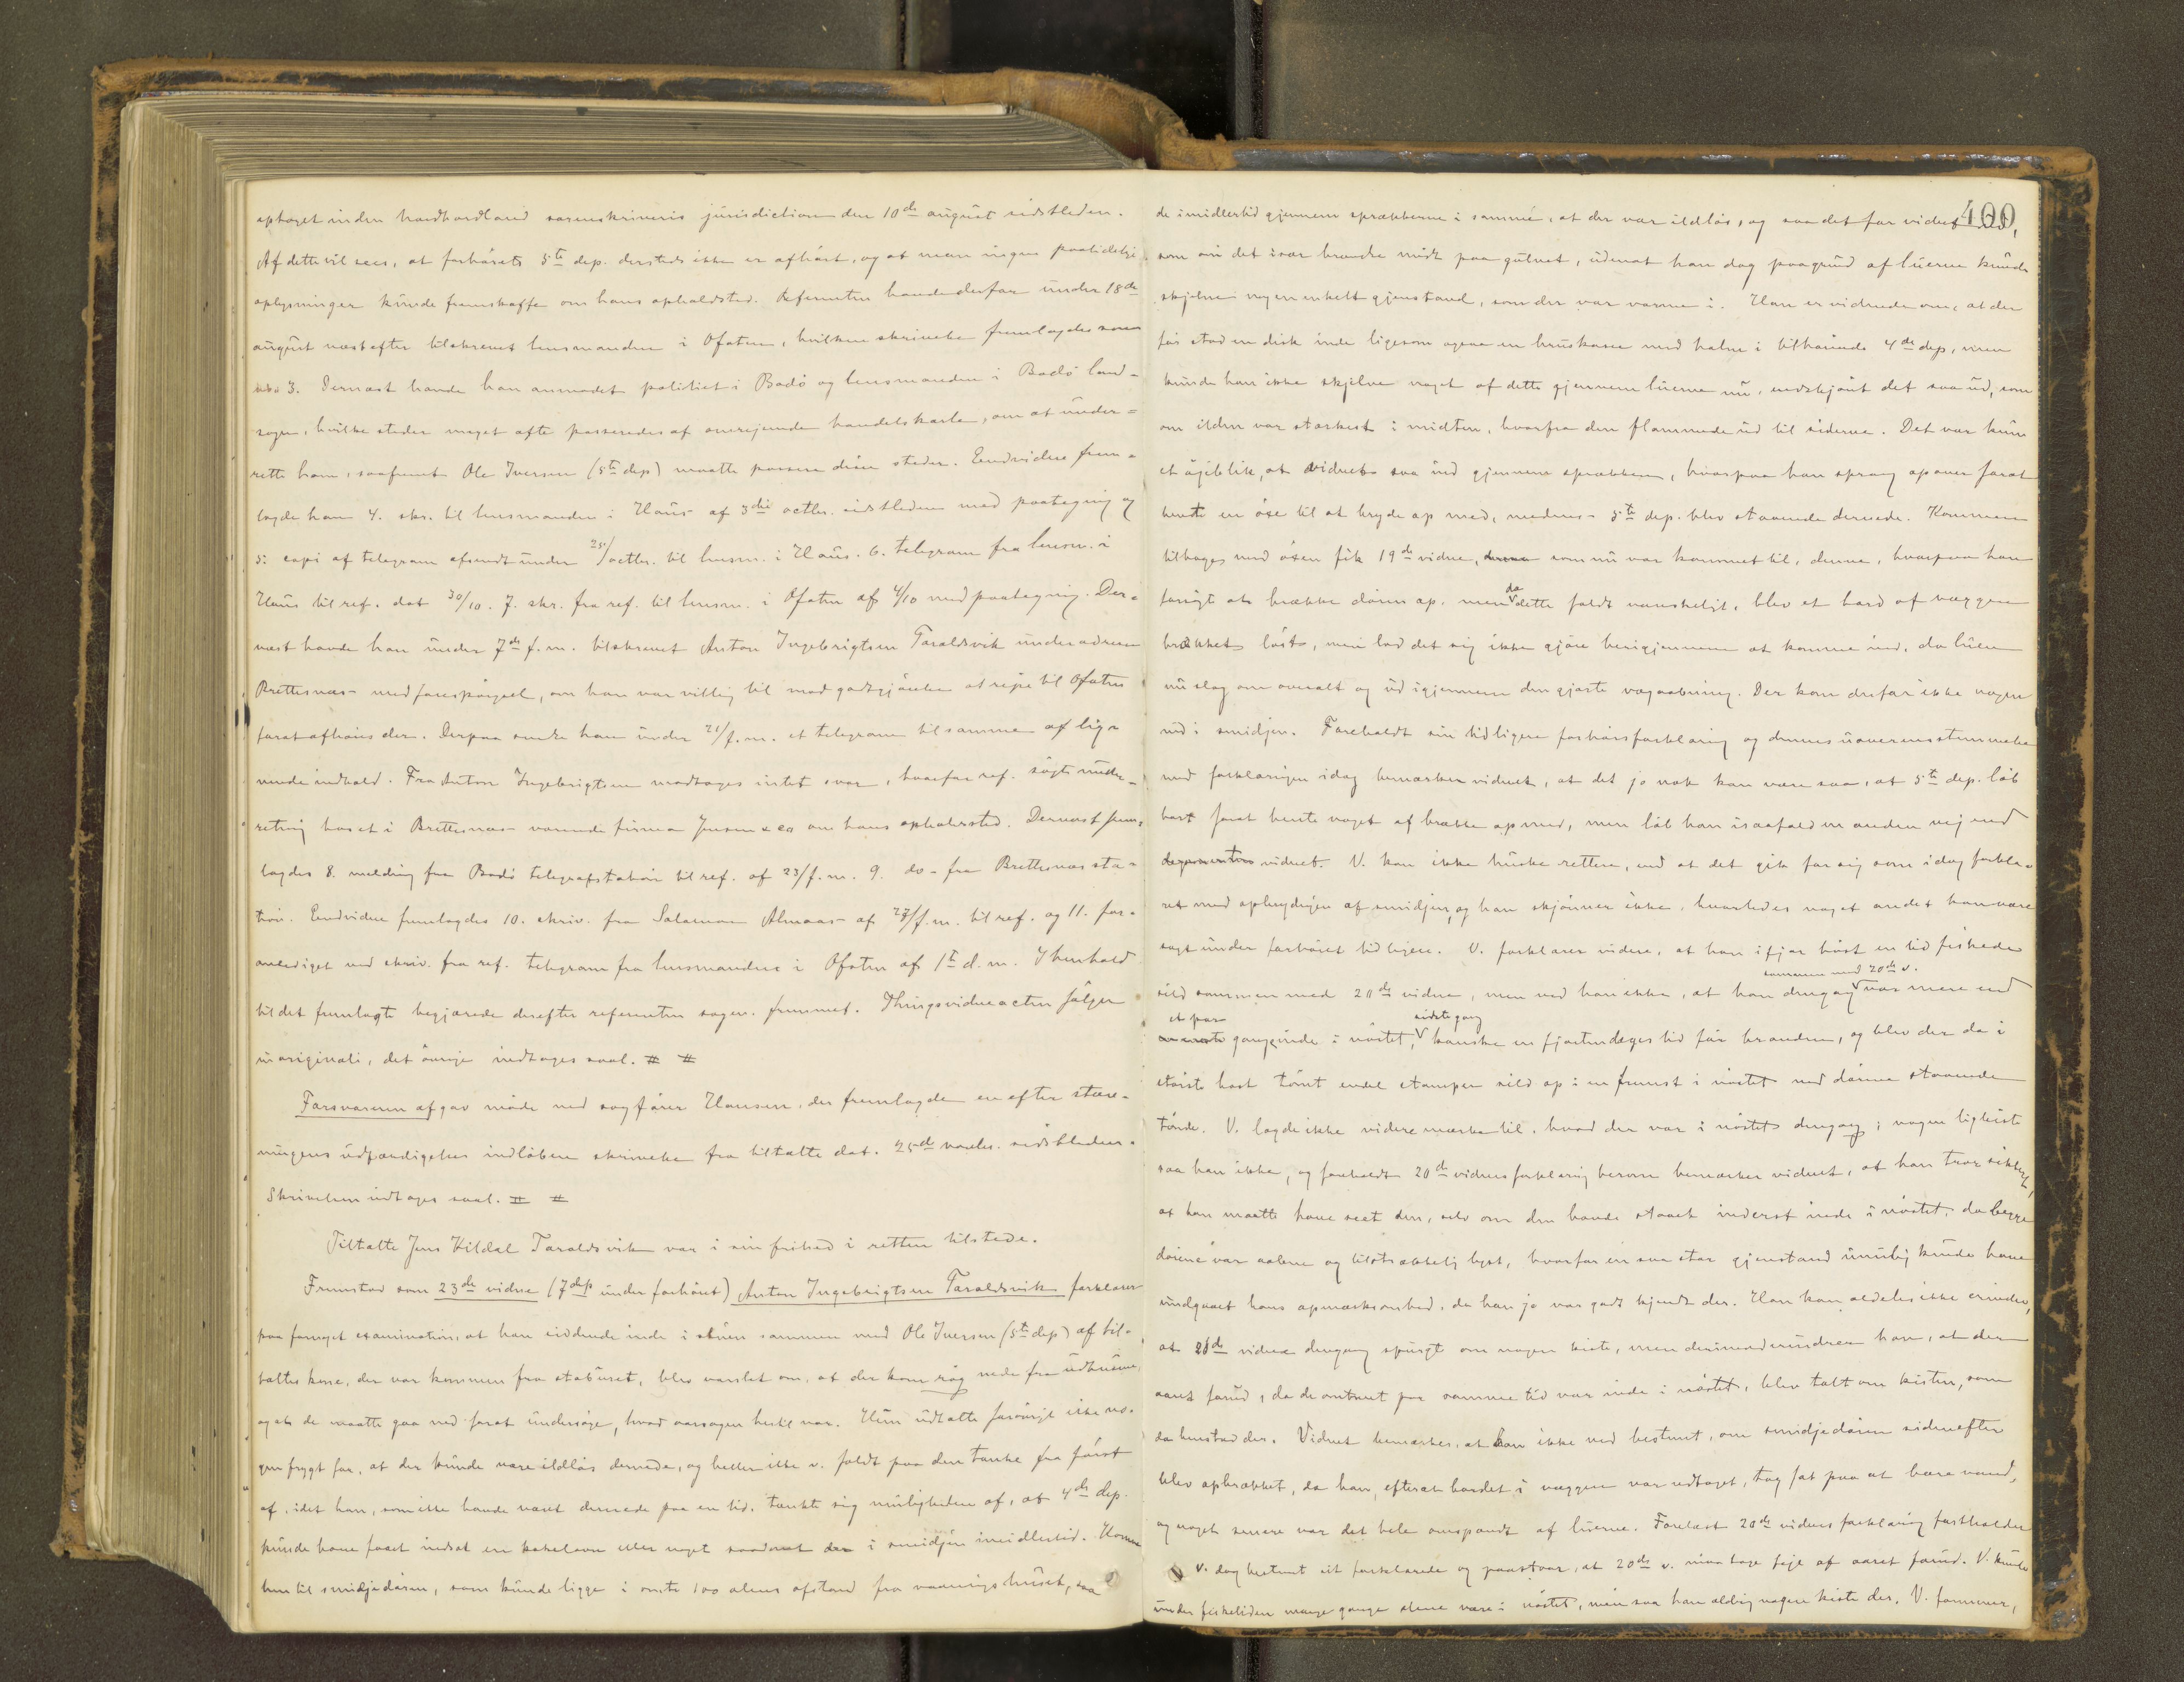 optaget inden Nordhordland sorenskriveris jurisdiction den 10de august sidstleden.
Af dette vil sees, at forhörets 5te dep. dersteds ikke er afhört, og at man ingen paalidelige
oplysninger kunde fremskaffe om hans opholdsted. Referenten havde derfor under 18de
august næstefter tilskrevet lensmanden i Ofoten, hvilken skrivelse fremlagdes som
no 3. Dernæst havde han anmodet politiet i Bodö og lensmanden i Bodö land-
sogn, hvilke steder meget ofte passeredes af omrejsende handelskarle, om at under-
rette ham, saafremt Ole Iversen (5te dep) maatte passere disse steder. Endvidere frem-
lagde han 4. skr. til lensmanden i Haus af 3die octbr. sidstleden med paategning og
5: copi af telegram afsendt under 25/ octbr. til lensm. i Haus. 6. telegram fra lensm. i
Haus til ref. dat 30/10. 7. skr. fra ref. til lensm. i Ofoten af 4/10 med paategning. Der-
næst havde han under 7de f. m. tilskrevet Anton Ingebrigtsen Taraldsvik under adresse
Brettesnæs med forespörgsel, om han var villig til mod godtgjörelse at rejse til Ofoten
forat afhöres der. Derpaa sendte han under 21/f. m. et telegram til samme af lig-
nende indhold. Fra Anton Ingebrigtsen modtoges intet svar, hvorfor ref. sögte under-
retning hos et i Brettesnæs værende firma Jensen & co om hans opholdssted. Dernæst frem-
lagdes 8. melding fra Bodö telegrafstation til ref. af 23/f. m. 9. do - fra Brettesnæs sta-
tion. Endvidere fremlagdes 10. skriv. fra Salamon Almaas af 27/f. m. til ref. og 11. for-
anlediget ved skriv. fra ref. telegram fra lensmanden i Ofoten af 1te d. m. I henhold
til det fremlagte begjærede derefter referenten sagen fremmet. Thingsvidneacten fölger
in originali, det övrige indtages saal. # #
Forsvareren afgav möde ved sagförer Hansen, der fremlagde en efter stæv-
ningens udfærdigelse indlöben skrivelse fra tiltalte dat. 25de novbr. sidstleden.
Skrivelsen indtages saal. # #
Tiltalte Jens Kildal Taraldsvik var i sin frihed i retten tilstede.
Fremstod som 23de vidne (7de dep under forhöret) Anton Ingebrigtsen Taraldsvik forklarer
paa foretaget examination, at han siddende inde i stuen sammen med Ole Iversen (5te dep) af til-
taltes kone, der var kommen fra stabuset, blev varslet om, at der kom rög nede fra udhusene,
og at de maatte gaa ned forat undersöge, hvad aarsagen hertil var. Hun udtalte forövrigt ikke no-
gen frygt for, at der kunde være ildlös dernede, og heller ikke v. faldt paa den tanke fra först
af, idet han, som ikke havde været dernede paa en tid, tænkte sig muligheden af, at 4de dep.
kunde have faaet indsat en kakelovn eller noget saadant der i smidjen imidlertid. Komne
hen til smidjedören, som kunde ligge i omtr 100 alens afstand fra vaaningshuset, saa
400,
de imidlertid gjennem sprækkerne i samme, at der var ildlös, og saa det for vidnet ud,
som om det især brændte midt paa gulvet, uden at han dog paagrund af luerne kunde
skjelne nogen enkelt gjenstand, som der var varme i. Han er vidende om, at der
för stod en disk inde ligesom ogsaa en bruskasse med halm i tilhörende 4de dep, men
kunde han ikke skjelne noget af dette gjennem luerne nu, endskjönt det saa ud, som
om ilden var stærkest i midten, hvorfra den flammede ud til siderne. Det var kun
et öjeblik, at vidnet saa ind gjennem sprækken, hvorpaa han sprang opover forat
hente en öxe til at bryde op med, medens 5te dep. blev staaende dernede. Kommen
tilbage med öxen fik 19de vidne, som nu var kommet til, denne, hvorpaa han
forsögte at brække dören op. men da dette faldt vanskeligt, blev et bord af væggen
brækket löst, men lod det sig ikke gjöre herigjennem at komme ind, da luen
nu slog om overalt og ud igjennem den gjorte vægaabning. Der kom derfor ikke nogen
ind i smidjen. Foreholdt sin tidligere forhörsforklaring og dennes uoverensstemmelse
med forklaringen idag bemærker vidnet, at det jo nok kan være saa, at 5te dep. löb
bort forat hente noget at brække op med, men löb han isaafald en anden vej end
vidnet. V. kan ikke huske rettere, end at det gik for sig som idag forkla-
ret med opbrydningen af smidjen, og han skjönner ikke, hvorledes noget andet kan være
sagt under forhöret tidligere. V. forklarer videre, at han ifjor höst en tid fiskede
sild sammen med 20de vidne, men ved han ikke, at han dengang sammen med 20de v. var mere end
et par gange inde i nöstet, sidste gang kanske en fjortendages tid för branden, og blev der da i
störste hast tömt endel stamper sild op i en fremst i nöstet ved dören staaende
tönde. V. lagde ikke videre mærke til, hvad der var i nöstet dengang; nogen ligkiste
saa han ikke, og foreholdt 20de vidnes forklaring herom bemærker vidnet, at han tror sikkert,
at han maatte have seet den, selv om den havde staaet inderst inde i nöstet, da begge
dörene var aabne og tilstrækkelig lyst, hvorfor en saa stor gjenstand umulig kunde have
undgaaet hans opmærksomhed, da han jo var godt kjendt der. Han kan aldeles ikke erindre,
at 20de vidne dengang spurgte om nogen kiste, men derimod erindrer han, at der
aaret forud, da de omtrent paa samme tid var inde i nöstet, blev talt om kisten, som
da henstod der. Vidnet bemærker, at han ikke ved bestemt, om smidjedören sidenefter
blev opbrækket, da han, efterat bordet i væggen var udtaget, tog fat paa at bære vand,
og noget senere var det hele omspændt af luerne. Forelæst 20de vidnes forklaring fastholder
v. dog bestemt sit forklarede og paastaar, at 20de v. maa tage fejl af aaret forud. V. kunde
under fisketiden mange gange alene være i nöstet, men saa han aldrig nogen kiste der. V. formener,